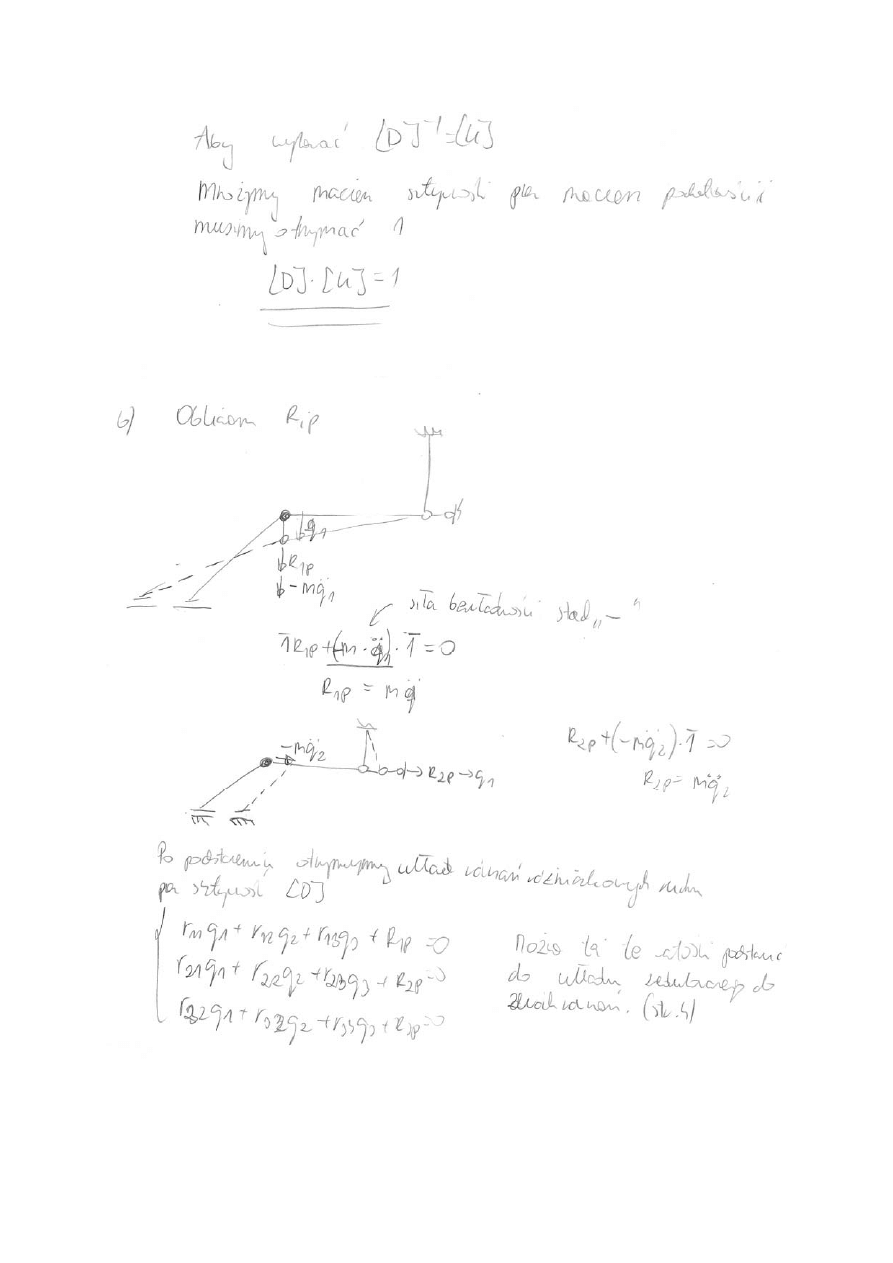 Aby wykazać [D]⁻¹=[K]
Mnożymy macierz sztywności przez macierz podatności
musimy otrzymać 1
[D]·[K]=1
6) Obliczam Rip
q1
R1P
-mq̈1
siła bezwładności stąd „-"
1̄R1P+(-m·q̈1)·1̄=0
R1P = mq̈
-mq̈2
R2P→q1
R2P+(-mq̈2)·1̄=0
R2P= mq̈2
Po podstawieniu otrzymujemy układ równań różniczkowych ruchu
przez sztywność [D]
r11q1+r12q2+r13q3+R1P=0
r21q1+r22q2+r23q3+R2P=0
r32q1+r32q2+r33q3+R3P=0
Można też te podstawić
do układu zredukowanego do
dwóch równań. (str.4)